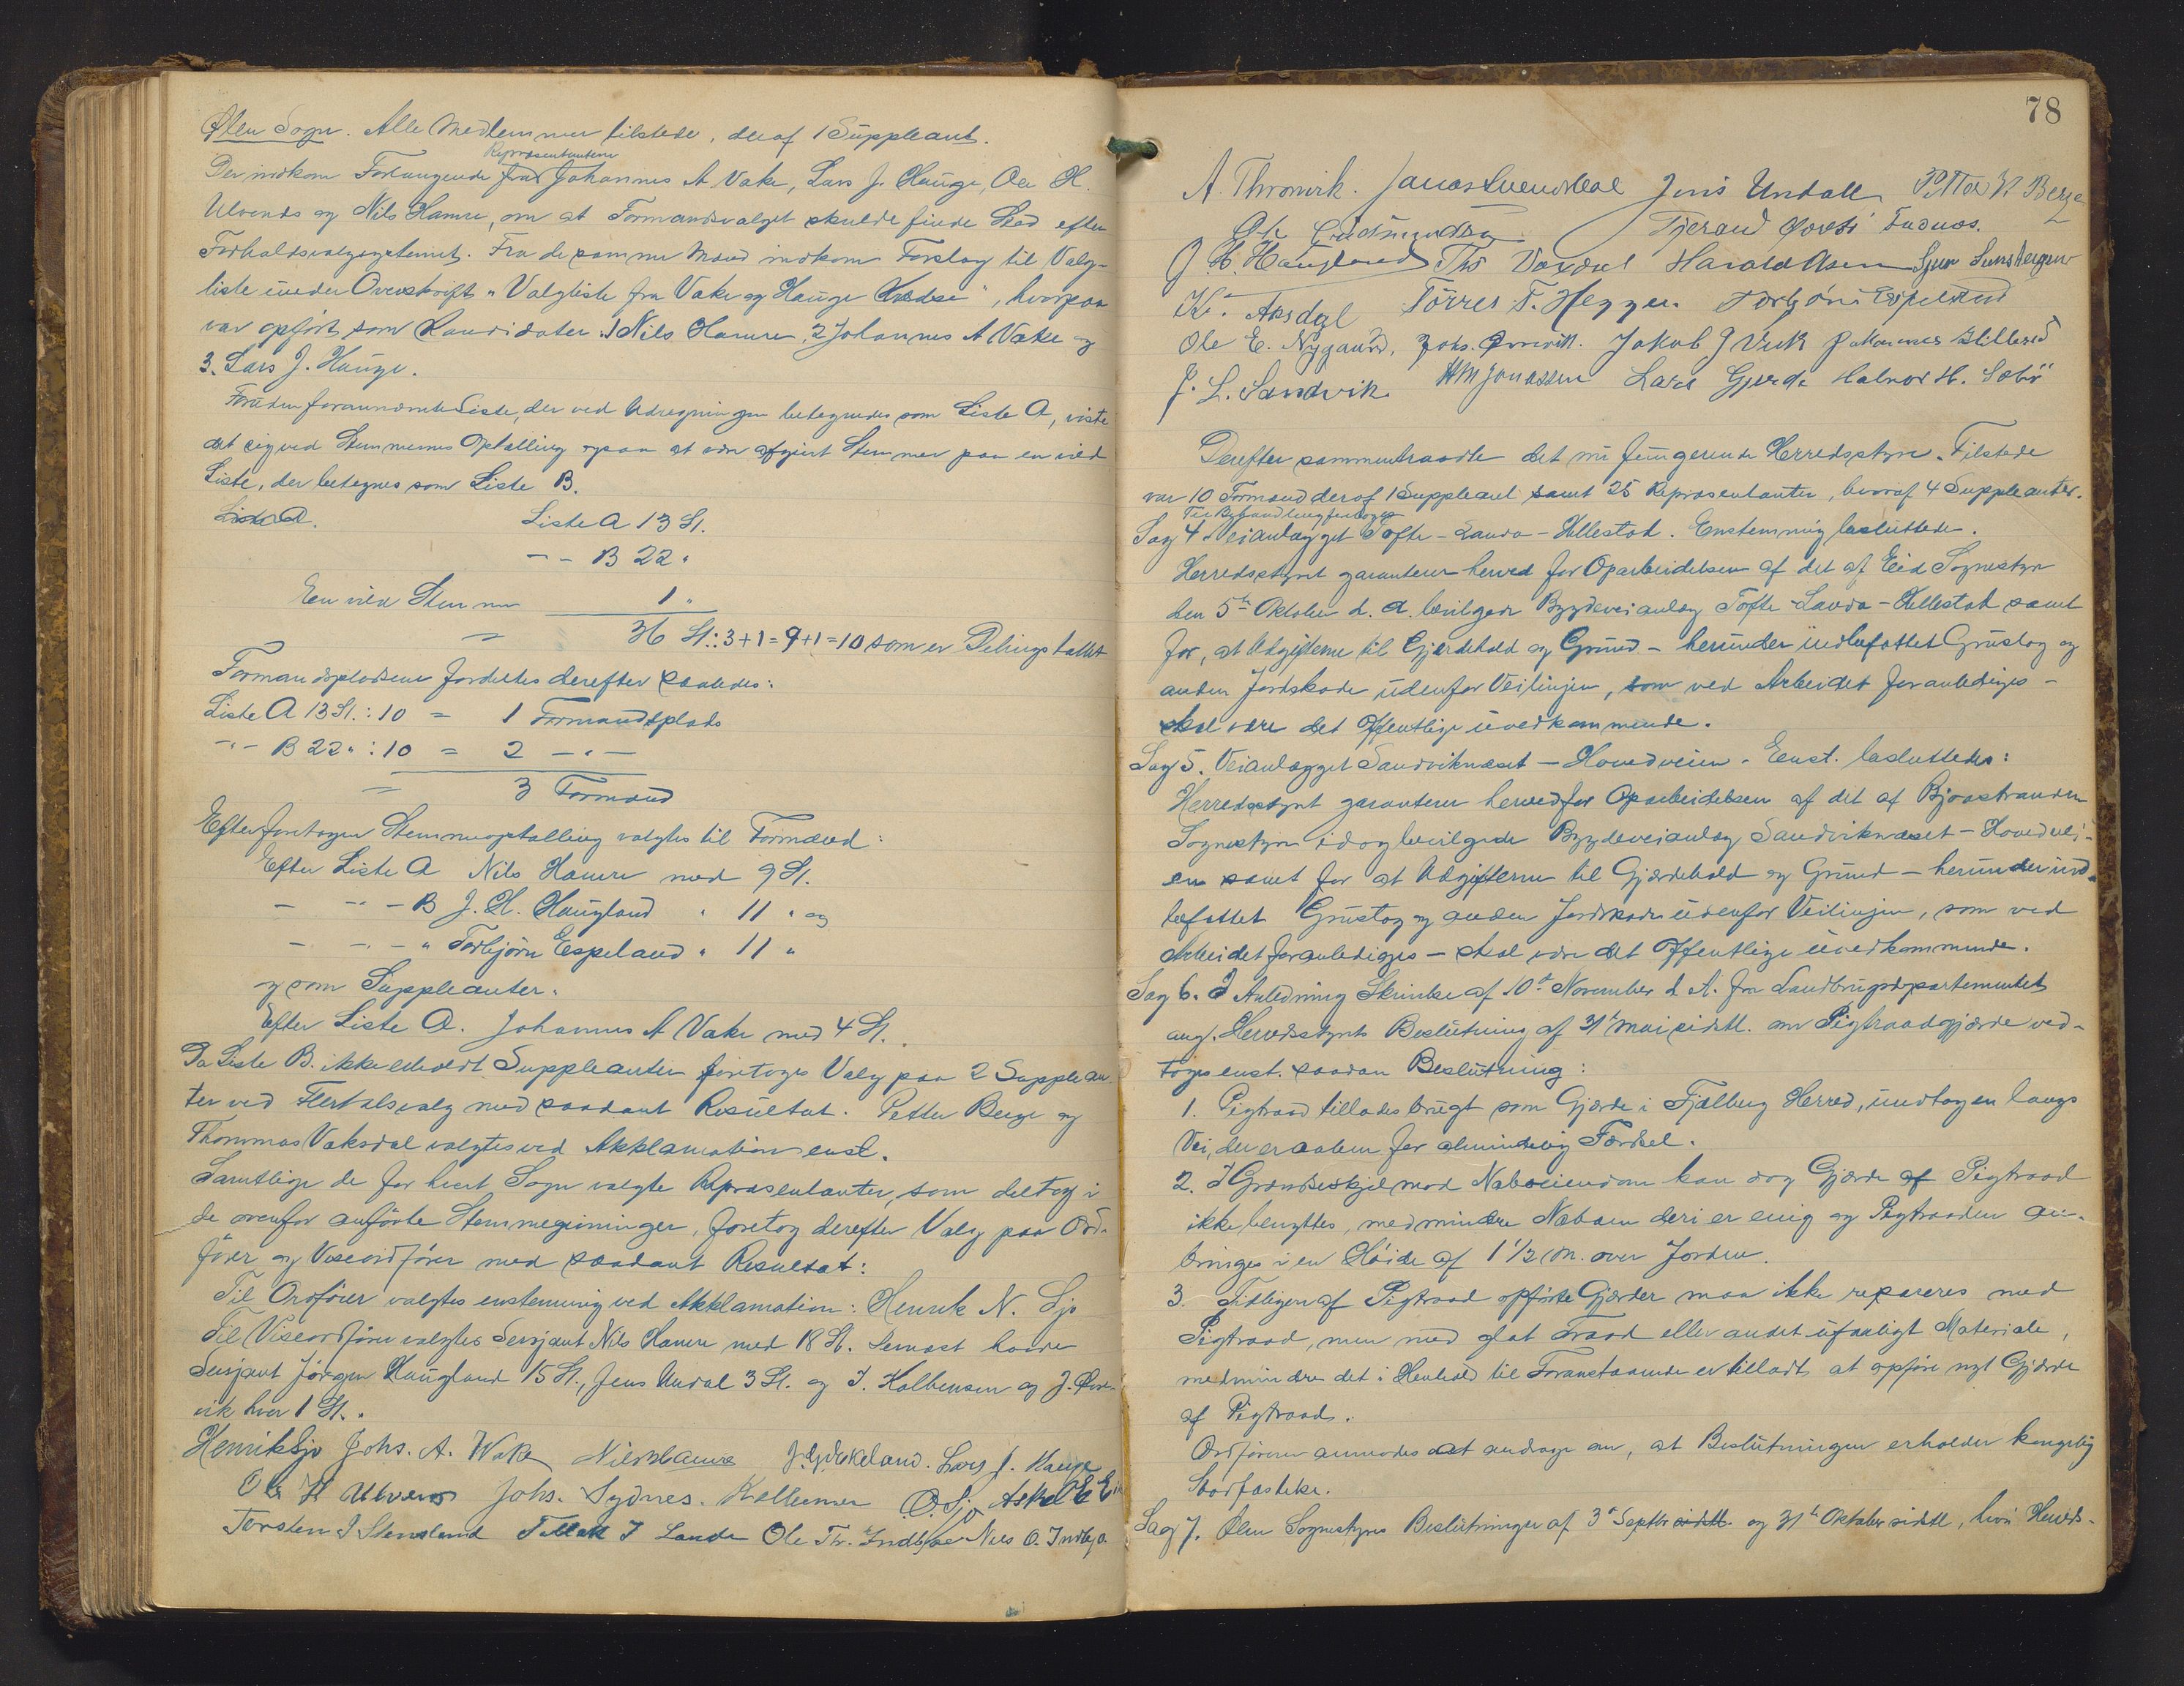 Ølen Sogn. Alle Medlemmer tilstede, deraf 1 Suppleant.
Der indkom Forlangende fra Repræsentanterne Johannes A Vake, Lars J. Hauge, Ole H.
Ulvenes og Nils Hamre, om at Formandsvalget skulde finde Sted efter
Forholdsvalgsystemet. Fra de samme Mænd indkom Forslag til Valg-
liste under Overskrift "Valgliste fra Vake og Hauge Kredse", hvorpaa
var opført som Kandidater: 1 Nils Hamre, 2 Johannes A Vake og
3. Lars J. Hauge.
Foruden forannævnte Liste, der ved Udregningen betegnedes som Liste A, viste
det sig ved Stemmernes Optælling ogsaa at være afgivt Stemmer paa en vild
Liste, der betegnes som Liste B.
Liste A.   Liste A 13 St.
- - B 22 "
En vild Stemme 1 "
= 36 St.: 3+1=9+1=10 som er Delingstallet
Formandspladsene fordeltes derefter saaledes:
Liste A 13 St.: 10 = 1 Formandsplads
-"- B 22 " : 10 = 2 -"-
= 3 Formænd
Efter foretagen Stemmeoptælling valgtes til Formænd:
Efter Liste A Nils Hamre med 9 St.
- - - B J. H. Haugland " 11 " og
- - - " Torbjörn Espeland " 11 "
og som Suppleanter.
Efter Liste A. Johannes A Vake med 4 St.
Da Liste B. ikke indeholdt Suppleanter foretoges Valg paa 2 Supplean-
ter ved Flertalsvalg med saadant Resultat. Petter Berge og
Thommas Vaksdal valgtes ved Akklamation enst.
Samtlige de for hvert Sogn valgte Repræsentanter, som deltog i
de ovenfor anførte Stemmegivninger, foretog derefter Valg paa Ord-
fører og Viseordfører med saadant Resultat:
Til Ordfører valgtes enstemmig ved Akklamation: Henrik N. Sjo
Til Viseordfører valgtes Sersjant Nils Hamre med 18 St. Dernæst havde
Sersjant Jörgen Haugland 15 St., Jens Undal 3 St. og T. Kolbensen og J. Øvre-
vik hver 1 St.
Henrik Sjo Johs. A. Wake Nils Hamre J. G. Ekeland. Lars J. Hauge
Ole H Ulvenes Johs. Sydnes. O. Sjo
Torsten J Stensland Tellak T Landa Ole Th. Indbjo Nils O. Indbjo.
78
A. Thronvik. Jens Undall Petter H Berge
Ole Gudmundsen
J. H. Haugland Ths Vaxdal Harald Aasen
Kr. Aksdal Törres T. Heggen. Torbjörn Espeland
Ole E. Nygaard, Johs. Øvrevik. Jakob J Vik
J. L. Sandvik HM Jonassen Lars Gjerde Halvor H. Sæbö
Derefter sammentraadte det nu fungerende Herredsstyre. Tilstede
var 10 Formænd deraf 1 Suppleant samt 25 Repræsentanter, hvoraf 4 Suppleanter.
Til Behandling foretoges
Sag 4. Veianlægget Tofte - Landa - Hellestad. Enstemmig besluttede.
Herredsstyret garanterer herved for Oparbeidelsen af det af Eid Sognestyre
den 5te Oktober d. A. bevilgede Bygdeveianlæg Tofte - Landa - Hellestad samt
for, at Udgifterne til Gjærdehold og Grund - herunder indbefattet Grustag og
anden Jordskade udenfor Veilinjen, som ved Arbeidet foranlediges -
skal være det Offentlige uvedkommende.
Sag 5. Veianlægget Sandviknæset - Hovedveien. Enst. besluttedes:
Herredsstyret garanterer herved for Oparbeidelsen af det af Bjoastranden
Sognestyre idag bevilgede Bygdeveianlæg Sandviknæset - Hovedvei-
en samt for at Udgifterne til Gjærdehold og Grund - herunder ind-
befattet Grustag og anden Jordskade udenfor Veilinjen, som ved
Arbeidet foranlediges - skal være det Offentlige uvedkommende.
Sag 6. I Anledning Skrivelse af 10de November d. A. fra Landbrugsdepartementet
ang. Herredsstyrets Beslutning af 31te Mai sidstl. om Pigtraadgjærde ved-
toges enst. saadan Beslutning:
1. Pigtraad tillades brugt som Gjærde i Fjelberg Herred, undtagen langs
Vei, der er aaben for almindelig Færdsel.
2. I Grændseskjel mod Naboeiendom kan dog Gjærde af Pigtraad
ikke benyttes, medmindre Naboen deri er enig og Pigtraaden an-
bringes i en Höide af 1 1/2 m. over Jorden.
3. Tidligere af Pigtraad opførte Gjærder maa ikke repareres med
Pigtraad, men med glat Traad eller andet ufarligt Materiale,
medmindre det i Henhold til Foranstaaende er tilladt at opføre nyt Gjærde
af Pigtraad.
Ordføreren anmodes at andrage om, at Beslutningen erholder kongelig
Stadfæstelse.
Sag 7. Ølen Sognestyres Beslutninger af 3de Septbr sidstl. og 31te Oktober sidstl, hvori Herreds-